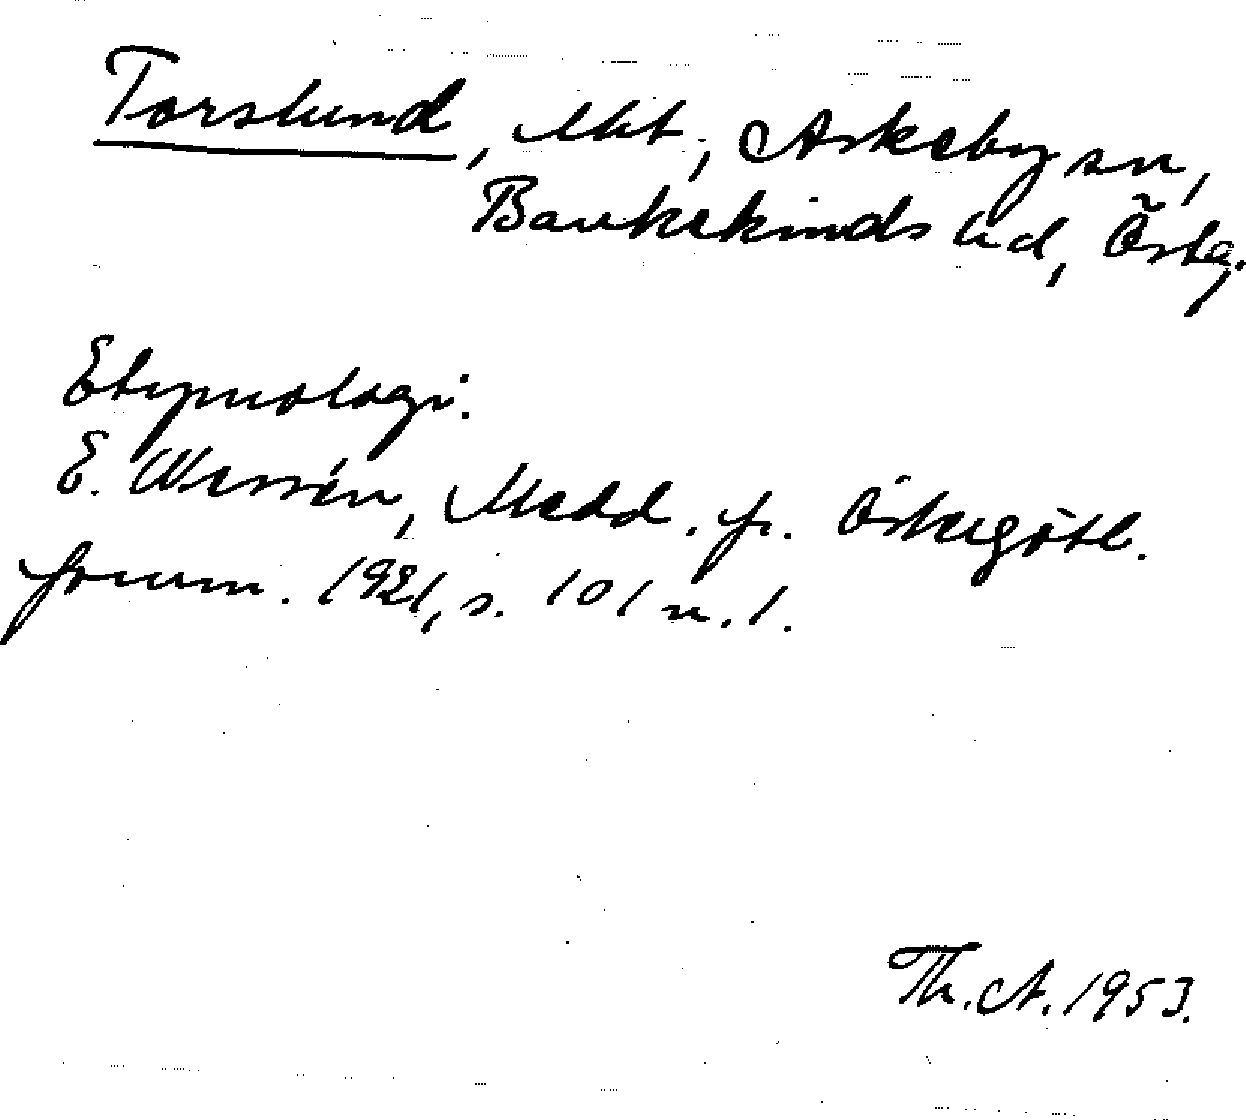 Torslund, Mbt, Askeby sn,
Bankekinds hd, Östg.
Etymologi:
E. Wessén, Medd. fr. Östergötl.
fornm. 1921, s. 101 n. 1.
Th. A. 1953.